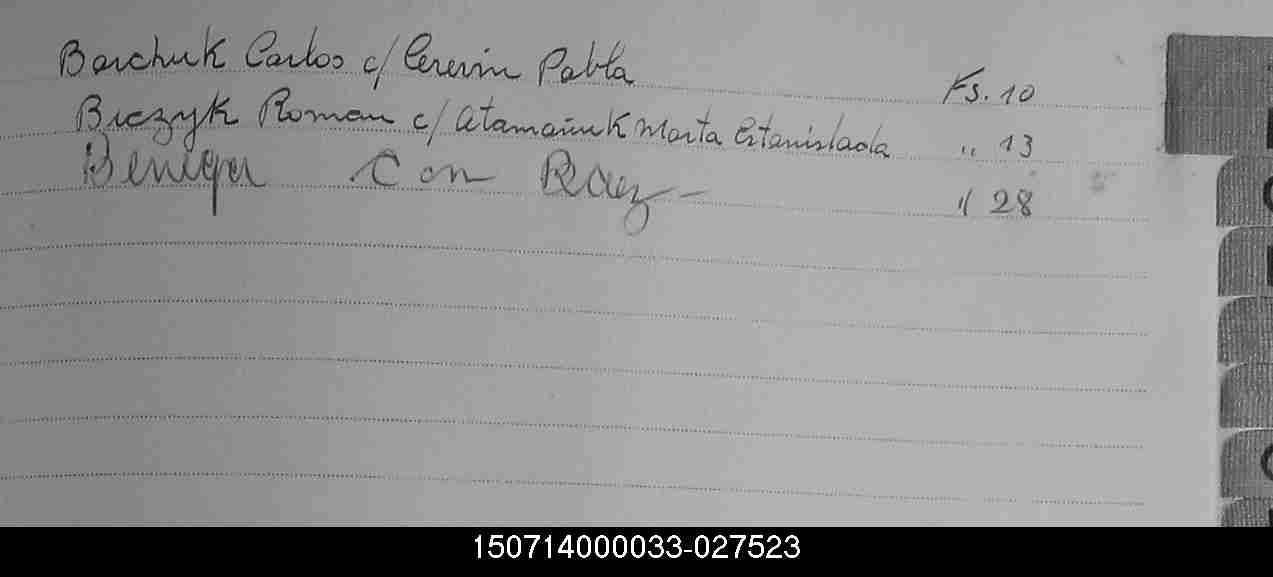 Barchuk Carlos c/ Cerevin Pabla Fs. 10
Biczyk Roman c/ Atamañuk Marta Estanislada " 13
Con " 28
150714000033-027523